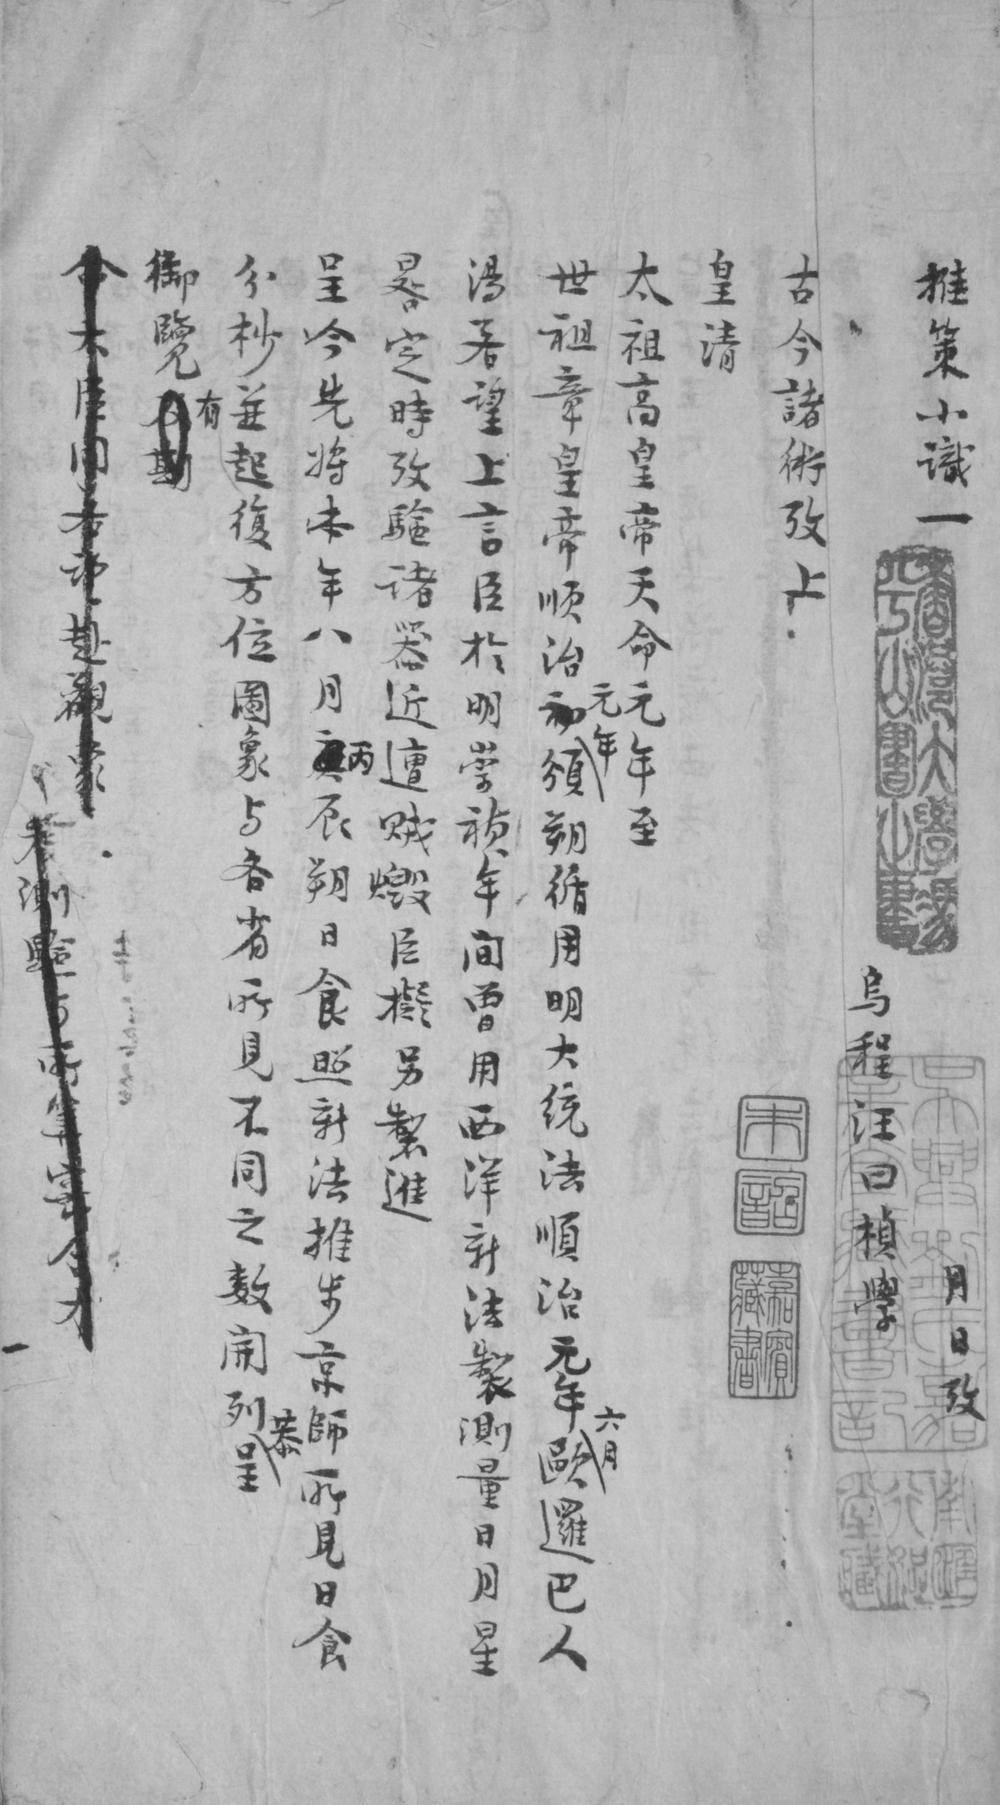 推策小識一
烏程汪曰楨學
月日攷
古今諸術攷上
皇清
太祖高皇帝天命元年至
世祖章皇帝順治元年頒朔循用明大統法順治元年六月歐邏巴人
湯若望上言臣於明崇禎年間曾用西洋新法製測量日月星
晷定時攷驗諸器近遭賊燬臣擬另製進
呈今先將本年八月丙辰朔日食照新法推步京師所見日食
分杪並起復方位圖象与各省所見不同之數開列恭呈
御覽有
命大臣同若望赴觀象
測驗与所算
朱記
嘉賓藏書